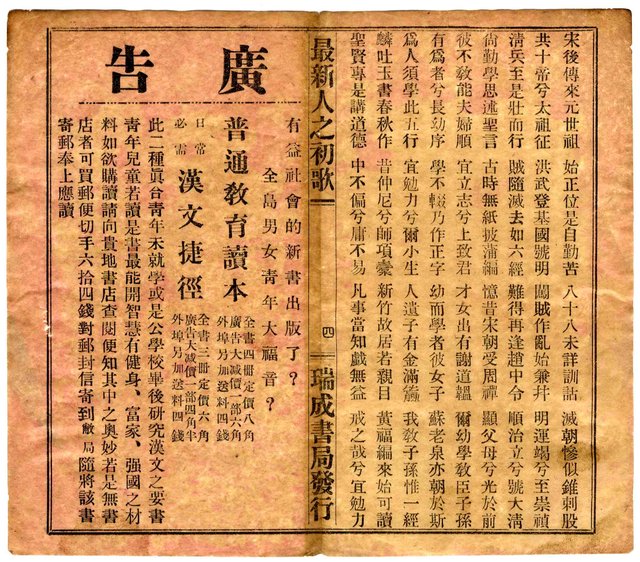 宋後傳來元世祖 始正位是自勤苦 八十八未詳訓詁 滅朝慘似錐刺股
共十帝兮太祖征 洪武登基國號明 闖賊作亂始兼幷 明運竭兮至崇禎
淸兵至是壯而行 賊隨滅去如六經 難得再逢趙中令 順治立兮號大淸
尙勤學思述聖言 古時無紙披蒲編 憶昔宋朝受周禪 顯父母兮光於前
彼不敎能夫婦順 宜立志兮上致君 才女出有謝道韞 爾幼學敎臣子孫
有爲者兮長幼序 學不輟乃作正字 幼而學者彼女子 蘇老泉亦朝於斯
爲人須學此五行 宜勉力兮爾小生 人遺子有金滿籯 我敎子孫惟一經
麟吐玉書春秋作 昔仲尼兮師項橐 新竹故居若親目 黃福編來始可讀
聖賢專是講道德 中不偏兮庸不易 凡事當知戱無益 戒之哉兮宜勉力
最新人之初歌 四 瑞成書局發行
廣告
有益社會的新書出版了?
全島男女靑年大福音?
普通敎育讀本
全書四冊定價八角
廣告大减價一部六角
外埠另加送料四錢
日常必需 漢文捷徑
全書三冊定價六角
廣告大减價一部四角半
外埠另加送料四錢
此二種眞台靑年未就學或是公學校畢後硏究漢文之要書
靑年兒童若讀是書最能開智慧有健身、富家、强國之材
料如欲購讀請向貴地書店查閱便知其中之奧妙若是無書
店者可買郵便切手六拾四錢對郵封信寄到敝局隨將該書
寄郵奉上應讀